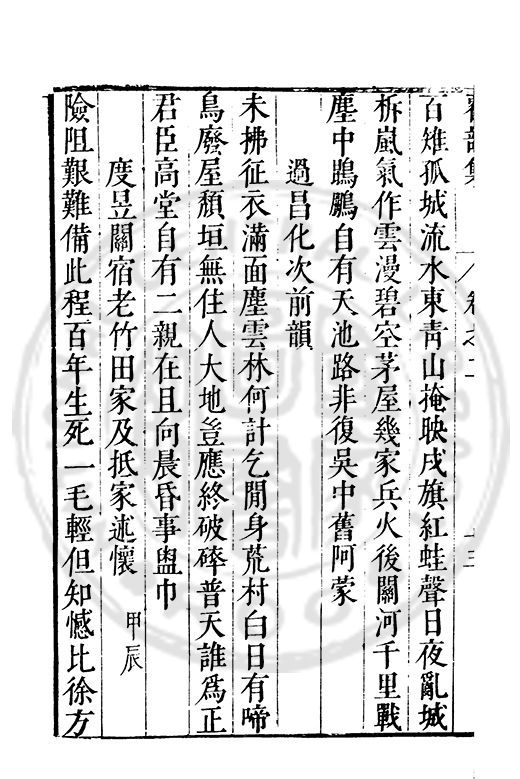 百雉孤城流水東青山掩映戍旗紅蛙聲日夜亂城
柝嵐氣作雲漫碧空茅屋幾家兵火後關河千里戰
塵中鵾鵬自有天池路非復吳中舊阿蒙
過昌化次前韻
未拂征衣滿面塵雲林何計乞閒身荒村白日有啼
鳥廢屋頹垣無住人大地豈應終破碎普天誰爲正
君臣高堂自有二親在且向晨昏事盥巾
度昱關宿老竹田家及抵家述懷 甲辰
險阻艱難備此程百年生死一毛輕但知憾比徐方